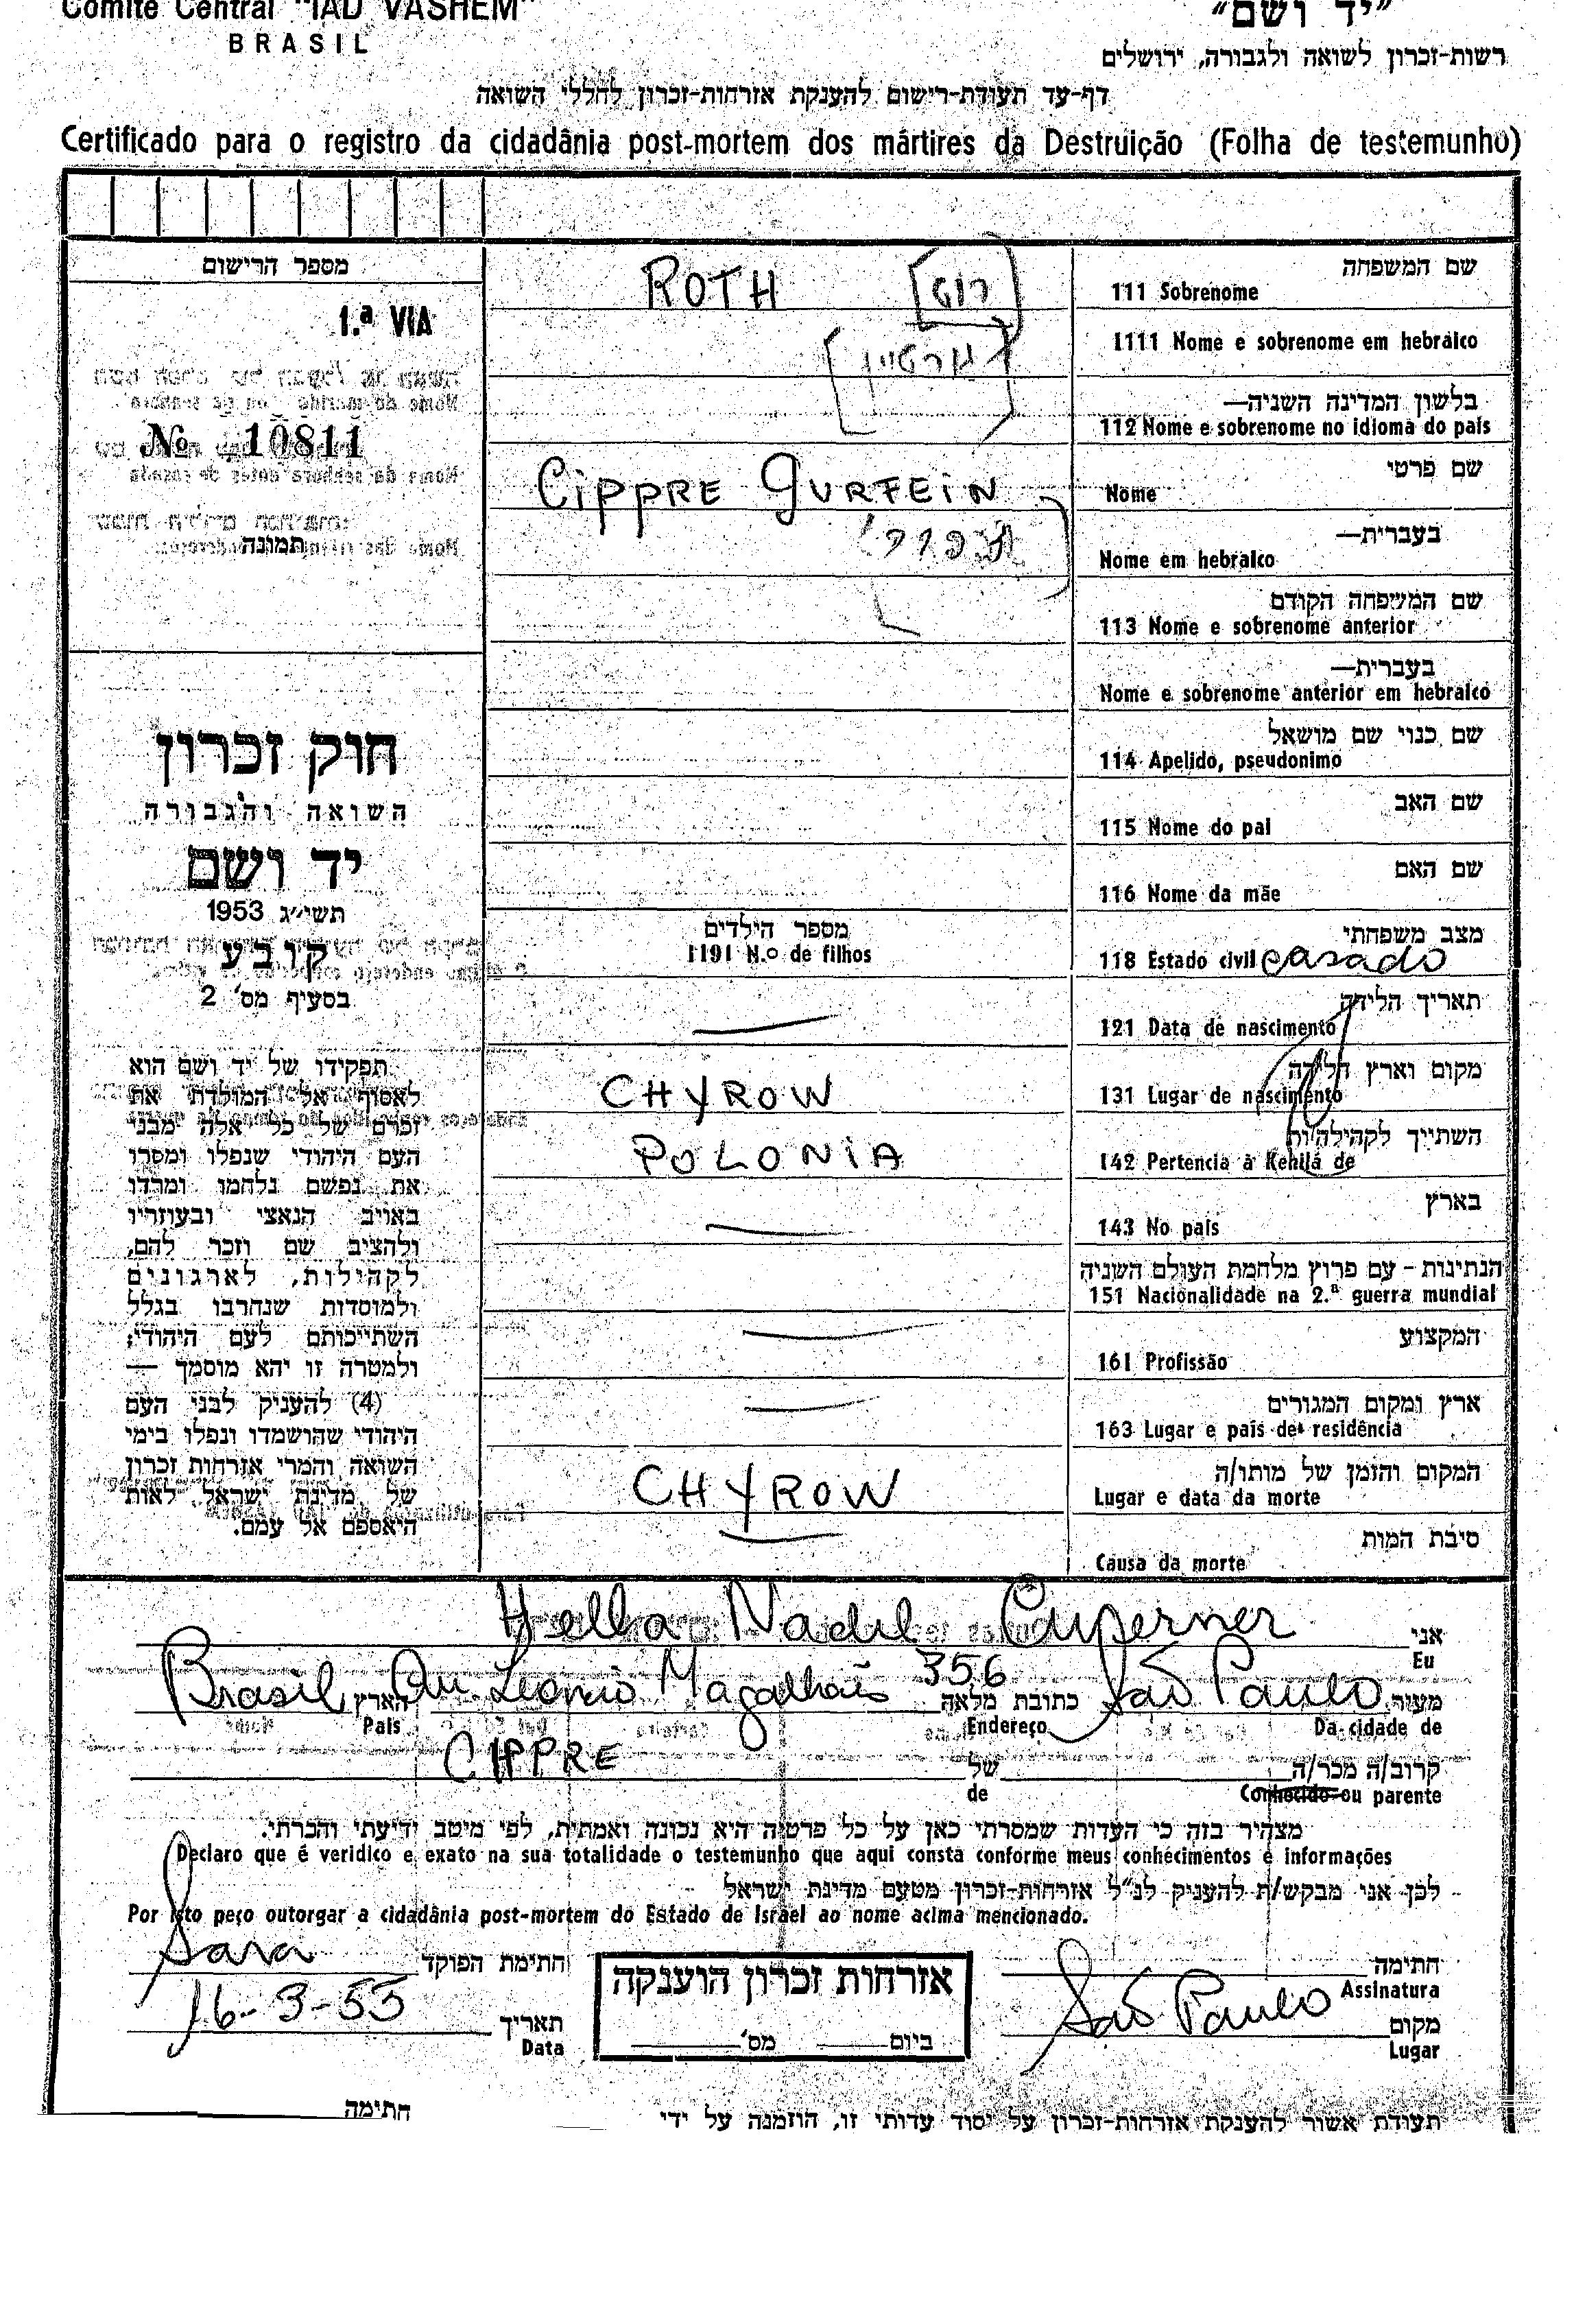 Comité Central "IAD VASHEM"
BRASIL
"יד ושם"
רשות-זכרון לשואה ולגבורה, ירושלים
דף-עד תעודת-רישום להענקת אזרחות-זכרון לחללי השואה
Certificado para o registro da cidadânia post-mortem dos mártires da Destruição (Folha de testemunho)
מספר הרישום
1.ª VIA
№ 10811
תמונה
חוק זכרון
השואה והגבורה
יד ושם
תשי״ג 1953
קובע
בסעיף מס' 2
תפקידו של יד ושם הוא
לאסוף אל המולדת את
זכרם של כל אלה מבני
העם היהודי שנפלו ומסרו
את נפשם נלחמו ומרדו
באויב הנאצי ובעוזריו
ולהציב שם וזכר להם,
לקהילות, לארגונים
ולמוסדות שנחרבו בגלל
השתייכותם לעם היהודי;
ולמטרה זו יהא מוסמך —
(4) להעניק לבני העם
היהודי שהושמדו ונפלו בימי
השואה והמרי אזרחות זכרון
של מדינת ישראל לאות
היאספם אל עמם.
שם המשפחה
111 Sobrenome ROTH [רוט]
1111 Nome e sobrenome em hebraico
בלשון המדינה השניה—
112 Nome e sobrenome no idioma do país
שם פרטי
Nome Cippre GURFEIN
בעברית—
Nome em hebraico
שם המשפחה הקודם
113 Nome e sobrenome anterior
בעברית—
Nome e sobrenome anterior em hebraico
שם כנוי שם מושאל
114 Apelido, pseudonimo
שם האב
115 Nome do pai
שם האם
116 Nome da mãe
מצב משפחתי
118 Estado civil casado
מספר הילדים
1191 N.º de filhos
תאריך הלידה
121 Data de nascimento
מקום וארץ הלידה
131 Lugar de nascimento CHYROW
השתייך לקהילה/ות
142 Pertencia à Kehilá de POLONIA
בארץ
143 No país
הנתינות - עם פרוץ מלחמת העולם השניה
151 Nacionalidade na 2.ª guerra mundial
המקצוע
161 Profissão
ארץ ומקום המגורים
163 Lugar e país de residência
המקום והזמן של מותו/ה
Lugar e data da morte CHYROW
סיבת המות
Causa da morte
אני
Eu Hella Nadel Cuperner
מעיר
Da cidade de São Paulo
כתובת מלאה
Endereço Leoncio Magalhães 356
הארץ
País Brasil
קרוב/ה מכר/ה
Conhecido ou parente
של
de CIPPRE
מצהיר בזה כי העדות שמסרתי כאן על כל פרטיה היא נכונה ואמתית, לפי מיטב ידיעתי והכרתי.
Declaro que é verídico e exato na sua totalidade o testemunho que aqui consta conforme meus conhécimentos e informações
לכן אני מבקש/ת להעניק לנ"ל אזרחות-זכרון מטעם מדינת ישראל
Por isto peço outorgar a cidadânia post-mortem do Estado de Israel ao nome acima mencionado.
חתימה
Assinatura
מקום
Lugar São Paulo
אזרחות זכרון הוענקה
ביום מס'
חתימת הפוקד
Sara
תאריך
Data 16-3-55
תעודת אשור להענקת אזרחות-זכרון על יסוד עדותי זו, הוזמנה על ידי
חתימה